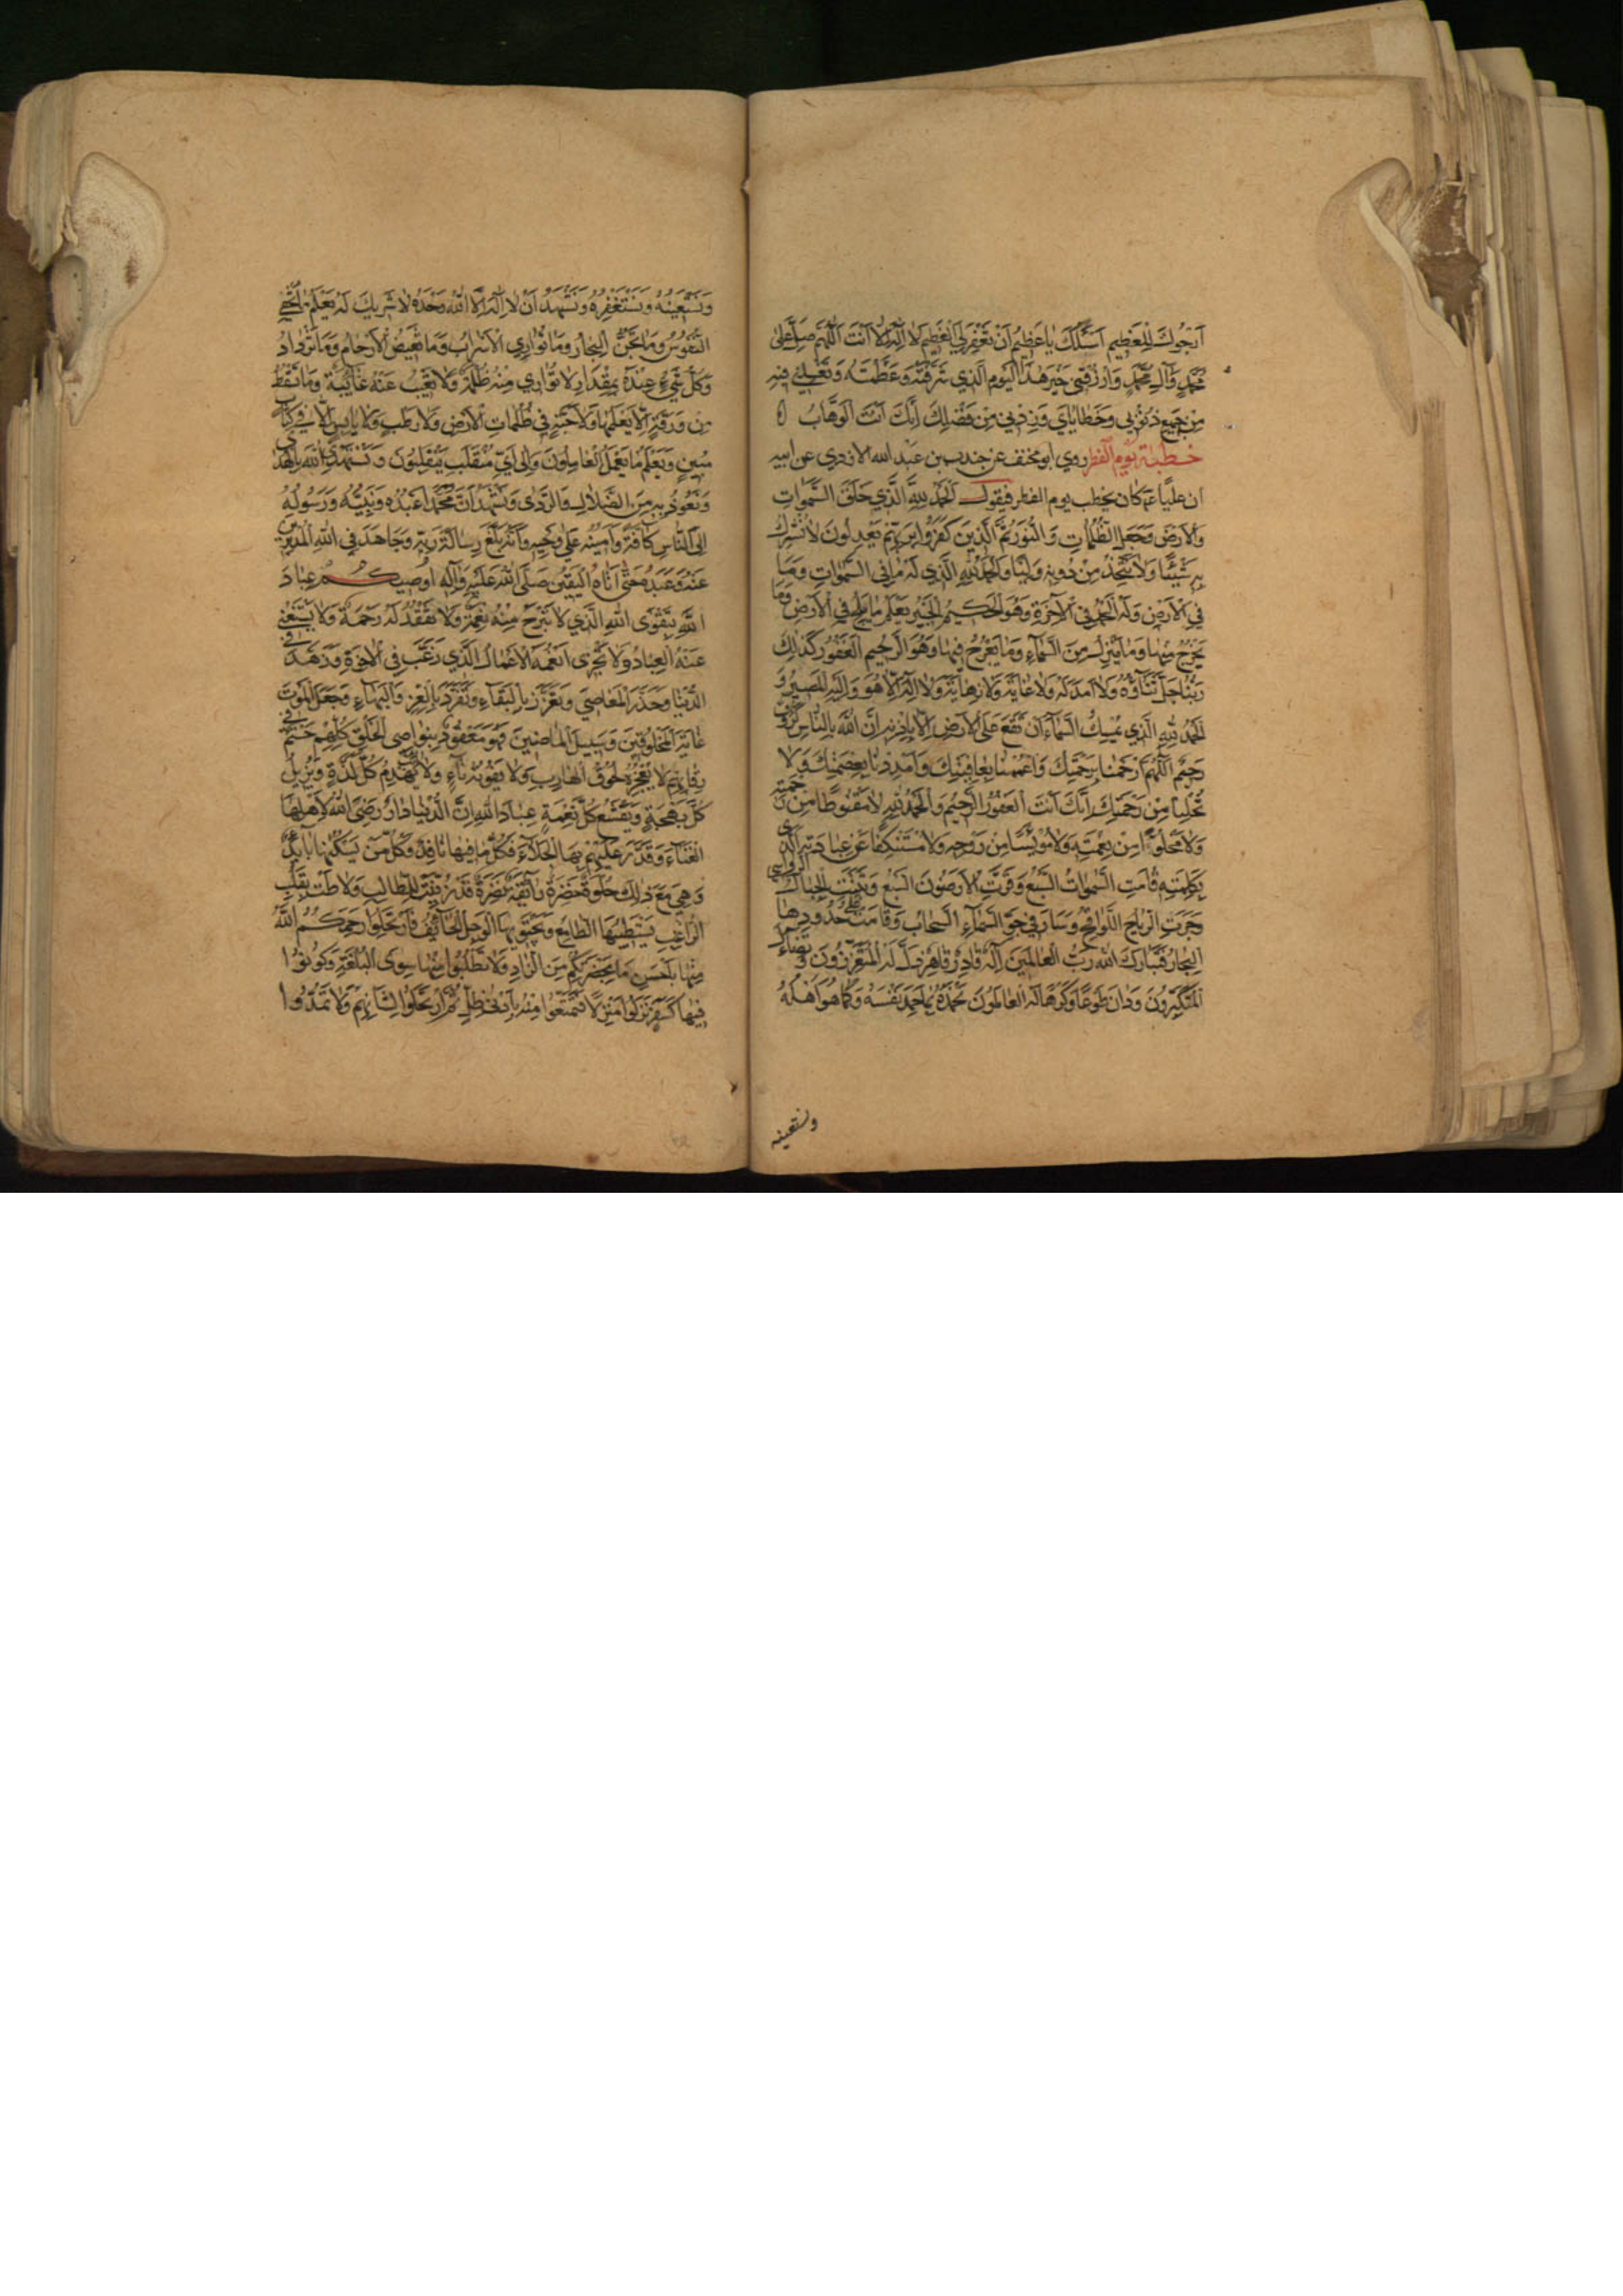 اَرْجُوكَ لِلْعَظِيمِ اَسْئَلُكَ يَا عَظِيمُ اَنْ تَغْفِرَ لِيَ الْعَظِيمَ لَا اِلٰهَ اِلَّا اَنْتَ اَللّٰهُمَّ صَلِّ عَلٰى
مُحَمَّدٍ وَآلِ مُحَمَّدٍ وَارْزُقْنِي خَيْرَ هٰذَا الْيَوْمِ الَّذِي شَرَّفْتَهُ وَعَظَّمْتَهُ وَتَغْسِلُنِي فِيهِ
مِنْ جَمِيعِ ذُنُوبِي وَخَطَايَايَ وَزِدْنِي مِنْ فَضْلِكَ اِنَّكَ اَنْتَ الْوَهَّابُ ه
خطبة يوم الفطر روي ابو مخنف عن جندب بن عبد الله الازدي عن ابيه
ان عليًا ع كان يخطب يوم الفطر فيقول اَلْحَمْدُ لِلّٰهِ الَّذِي خَلَقَ السَّمٰوَاتِ
وَالْاَرْضَ وَجَعَلَ الظُّلُمَاتِ وَالنُّورَ ثُمَّ الَّذِينَ كَفَرُوا بِرَبِّهِمْ يَعْدِلُونَ لَا نُشْرِكُ
بِهِ شَيْئًا وَلَا نَتَّخِذُ مِنْ دُونِهِ وَلِيًّا وَالْحَمْدُ لِلّٰهِ الَّذِي لَهُ مَا فِي السَّمٰوَاتِ وَمَا
فِي الْاَرْضِ وَلَهُ الْحَمْدُ فِي الْآخِرَةِ وَهُوَ الْحَكِيمُ الْخَبِيرُ يَعْلَمُ مَا يَلِجُ فِي الْاَرْضِ وَمَا
يَخْرُجُ مِنْهَا وَمَا يَنْزِلُ مِنَ السَّمَاءِ وَمَا يَعْرُجُ فِيهَا وَهُوَ الرَّحِيمُ الْغَفُورُ كَذٰلِكَ
رَبُّنَا جَلَّ ثَنَاؤُهُ وَلَا اَمَدَ لَهُ وَلَا غَايَةَ وَلَا نِهَايَةَ وَلَا اِلٰهَ اِلَّا هُوَ وَاِلَيْهِ الْمَصِيرُ وَ
الْحَمْدُ لِلّٰهِ الَّذِي يُمْسِكُ السَّمَاءَ اَنْ تَقَعَ عَلَى الْاَرْضِ اِلَّا بِاِذْنِهِ اِنَّ اللّٰهَ بِالنَّاسِ لَرَؤُفٌ
رَحِيمٌ اَللّٰهُمَّ ارْحَمْنَا بِرَحْمَتِكَ وَاعْمُمْنَا بِعَافِيَتِكَ وَاَمْدِدْنَا بِعِصْمَتِكَ وَلَا
تُخْلِنَا مِنْ رَحْمَتِكَ اِنَّكَ اَنْتَ الْغَفُورُ الرَّحِيمُ وَالْحَمْدُ لِلّٰهِ لَا مَقْنُوطًا مِنْ رَحْمَتِهِ
وَلَا مَخْلُوًّا مِنْ نِعْمَتِهِ وَلَا مُؤْيَسًا مِنْ رَوْحِهِ وَلَا مُسْتَنْكِفًا عَنْ عِبَادَتِهِ الَّذِي
بِكَلِمَتِهِ قَامَتِ السَّمٰوَاتُ السَّبْعُ وَقَرَّتِ الْاَرَضُونَ السَّبْعُ وَثَبَتَتِ الْجِبَالُ الرَّوَاسِي
وَجَرَتِ الرِّيَاحُ اللَّوَاقِحُ وَسَارَ فِي جَوِّ السَّمَاءِ السَّحَابُ وَقَامَتْ عَلٰى حُدُودِهَا
الْبِحَارُ فَتَبَارَكَ اللّٰهُ رَبُّ الْعَالَمِينَ اِلٰهٌ قَادِرٌ قَاهِرٌ ذَلَّ لَهُ الْمُتَعَزِّزُونَ وَتَضَاءَلَ لَهُ
الْمُتَكَبِّرُونَ وَدَانَ طَوْعًا وَكَرْهًا لَهُ الْعَالَمُونَ نَحْمَدُهُ بِمَا حَمِدَ نَفْسَهُ وَكَمَا هُوَ اَهْلُهُ
ونستعينه
وَنَسْتَعِينُهُ وَنَسْتَغْفِرُهُ وَنَشْهَدُ اَنْ لَا اِلٰهَ اِلَّا اللّٰهُ وَحْدَهُ لَا شَرِيكَ لَهُ يَعْلَمُ مَا تُخْفِي
النُّفُوسُ وَمَا تُجِنُّ الْبِحَارُ وَمَا تُوَارِي الْاَسْرَابُ وَمَا تَغِيضُ الْاَرْحَامُ وَمَا تَزْدَادُ
وَكُلُّ شَيْءٍ عِنْدَهُ بِمِقْدَارٍ لَا تُوَارِي مِنْهُ ظُلْمَةٌ وَلَا تَغِيبُ عَنْهُ غَائِبَةٌ وَمَا تَسْقُطُ
مِنْ وَرَقَةٍ اِلَّا يَعْلَمُهَا وَلَا حَبَّةٍ فِي ظُلُمَاتِ الْاَرْضِ وَلَا رَطْبٍ وَلَا يَابِسٍ اِلَّا فِي كِتَابٍ
مُبِينٍ وَيَعْلَمُ مَا يَعْمَلُ الْعَامِلُونَ وَاِلٰى اَيِّ مُنْقَلَبٍ يَنْقَلِبُونَ وَنَسْتَهْدِي اللّٰهَ بِالْهُدٰى
وَنَعُوذُ بِهِ مِنَ الضَّلَالِ وَالرَّدٰى وَنَشْهَدُ اَنَّ مُحَمَّدًا عَبْدُهُ وَنَبِيُّهُ وَرَسُولُهُ
اِلَى النَّاسِ كَافَّةً وَاَمِينُهُ عَلٰى وَحْيِهِ وَاَنَّهُ بَلَّغَ رِسَالَةَ رَبِّهِ وَجَاهَدَ فِي اللّٰهِ الْمُدْبِرِينَ
عَنْهُ وَعَبَدَهُ حَتّٰى اَتَاهُ الْيَقِينُ صَلَّى اللّٰهُ عَلَيْهِ وَآلِهِ اُوصِيكُمْ عِبَادَ
اللّٰهِ بِتَقْوَى اللّٰهِ الَّذِي لَا تَبْرَحُ مِنْهُ نِعْمَةٌ وَلَا تُفْقَدُ لَهُ رَحْمَةٌ وَلَا يَسْتَغْنِي
عَنْهُ الْعِبَادُ وَلَا تَجْزِي اَنْعُمَهُ الْاَعْمَالُ الَّذِي رَغَّبَ فِي الْآخِرَةِ وَزَهَّدَ فِي
الدُّنْيَا وَحَذَّرَ الْمَعَاصِيَ وَتَعَزَّزَ بِالْبَقَاءِ وَتَفَرَّدَ بِالْعِزِّ وَالْبَهَاءِ وَجَعَلَ الْمَوْتَ
غَايَةَ الْمَخْلُوقِينَ وَسَبِيلَ الْمَاضِينَ فَهُوَ مَعْقُودٌ بِنَوَاصِي الْخَلْقِ كُلِّهِمْ حَتْمٌ فِي
رِقَابِهِمْ لَا يُعْجِزُهُ لُحُوقُ الْهَارِبِ وَلَا يَفُوتُهُ نَاءٍ وَلَا آئِبٌ يَهْدِمُ كُلَّ لَذَّةٍ وَيُزِيلُ
كُلَّ بَهْجَةٍ وَيَقْشَعُ كُلَّ نِعْمَةٍ عِبَادَ اللّٰهِ اِنَّ الدُّنْيَا دَارٌ رَضِيَ اللّٰهُ لِاَهْلِهَا
الْفَنَاءَ وَقَدَّرَ عَلَيْهِمْ بِهَا الْجَلَاءَ فَكُلُّ مَا فِيهَا نَافِدٌ وَكُلُّ مَنْ يَسْكُنُهَا بَائِدٌ
وَهِيَ مَعَ ذٰلِكَ حُلْوَةٌ خَضِرَةٌ رَائِقَةٌ نَضِرَةٌ قَدْ زُيِّنَتْ لِلطَّالِبِ وَلَاطَتْ بِقَلْبِ
الرَّاغِبِ يَسْتَطِيبُهَا الطَّامِعُ وَيَجْتَوِيهَا الْوَجِلُ الْخَائِفُ فَارْتَحِلُوا رَحِمَكُمُ اللّٰهُ
مِنْهَا بِاَحْسَنِ مَا بِحَضْرَتِكُمْ مِنَ الزَّادِ وَلَا تَطْلُبُوا مِنْهَا سِوَى الْبُلْغَةِ وَكُونُوا
فِيهَا كَسَفْرٍ نَزَلُوا مَنْزِلًا فَتَمَتَّعُوا مِنْهُ بِاَدْنٰى ظِلٍّ ثُمَّ ارْتَحَلُوا لِشَأْنِهِمْ وَلَا تَمُدُّوا